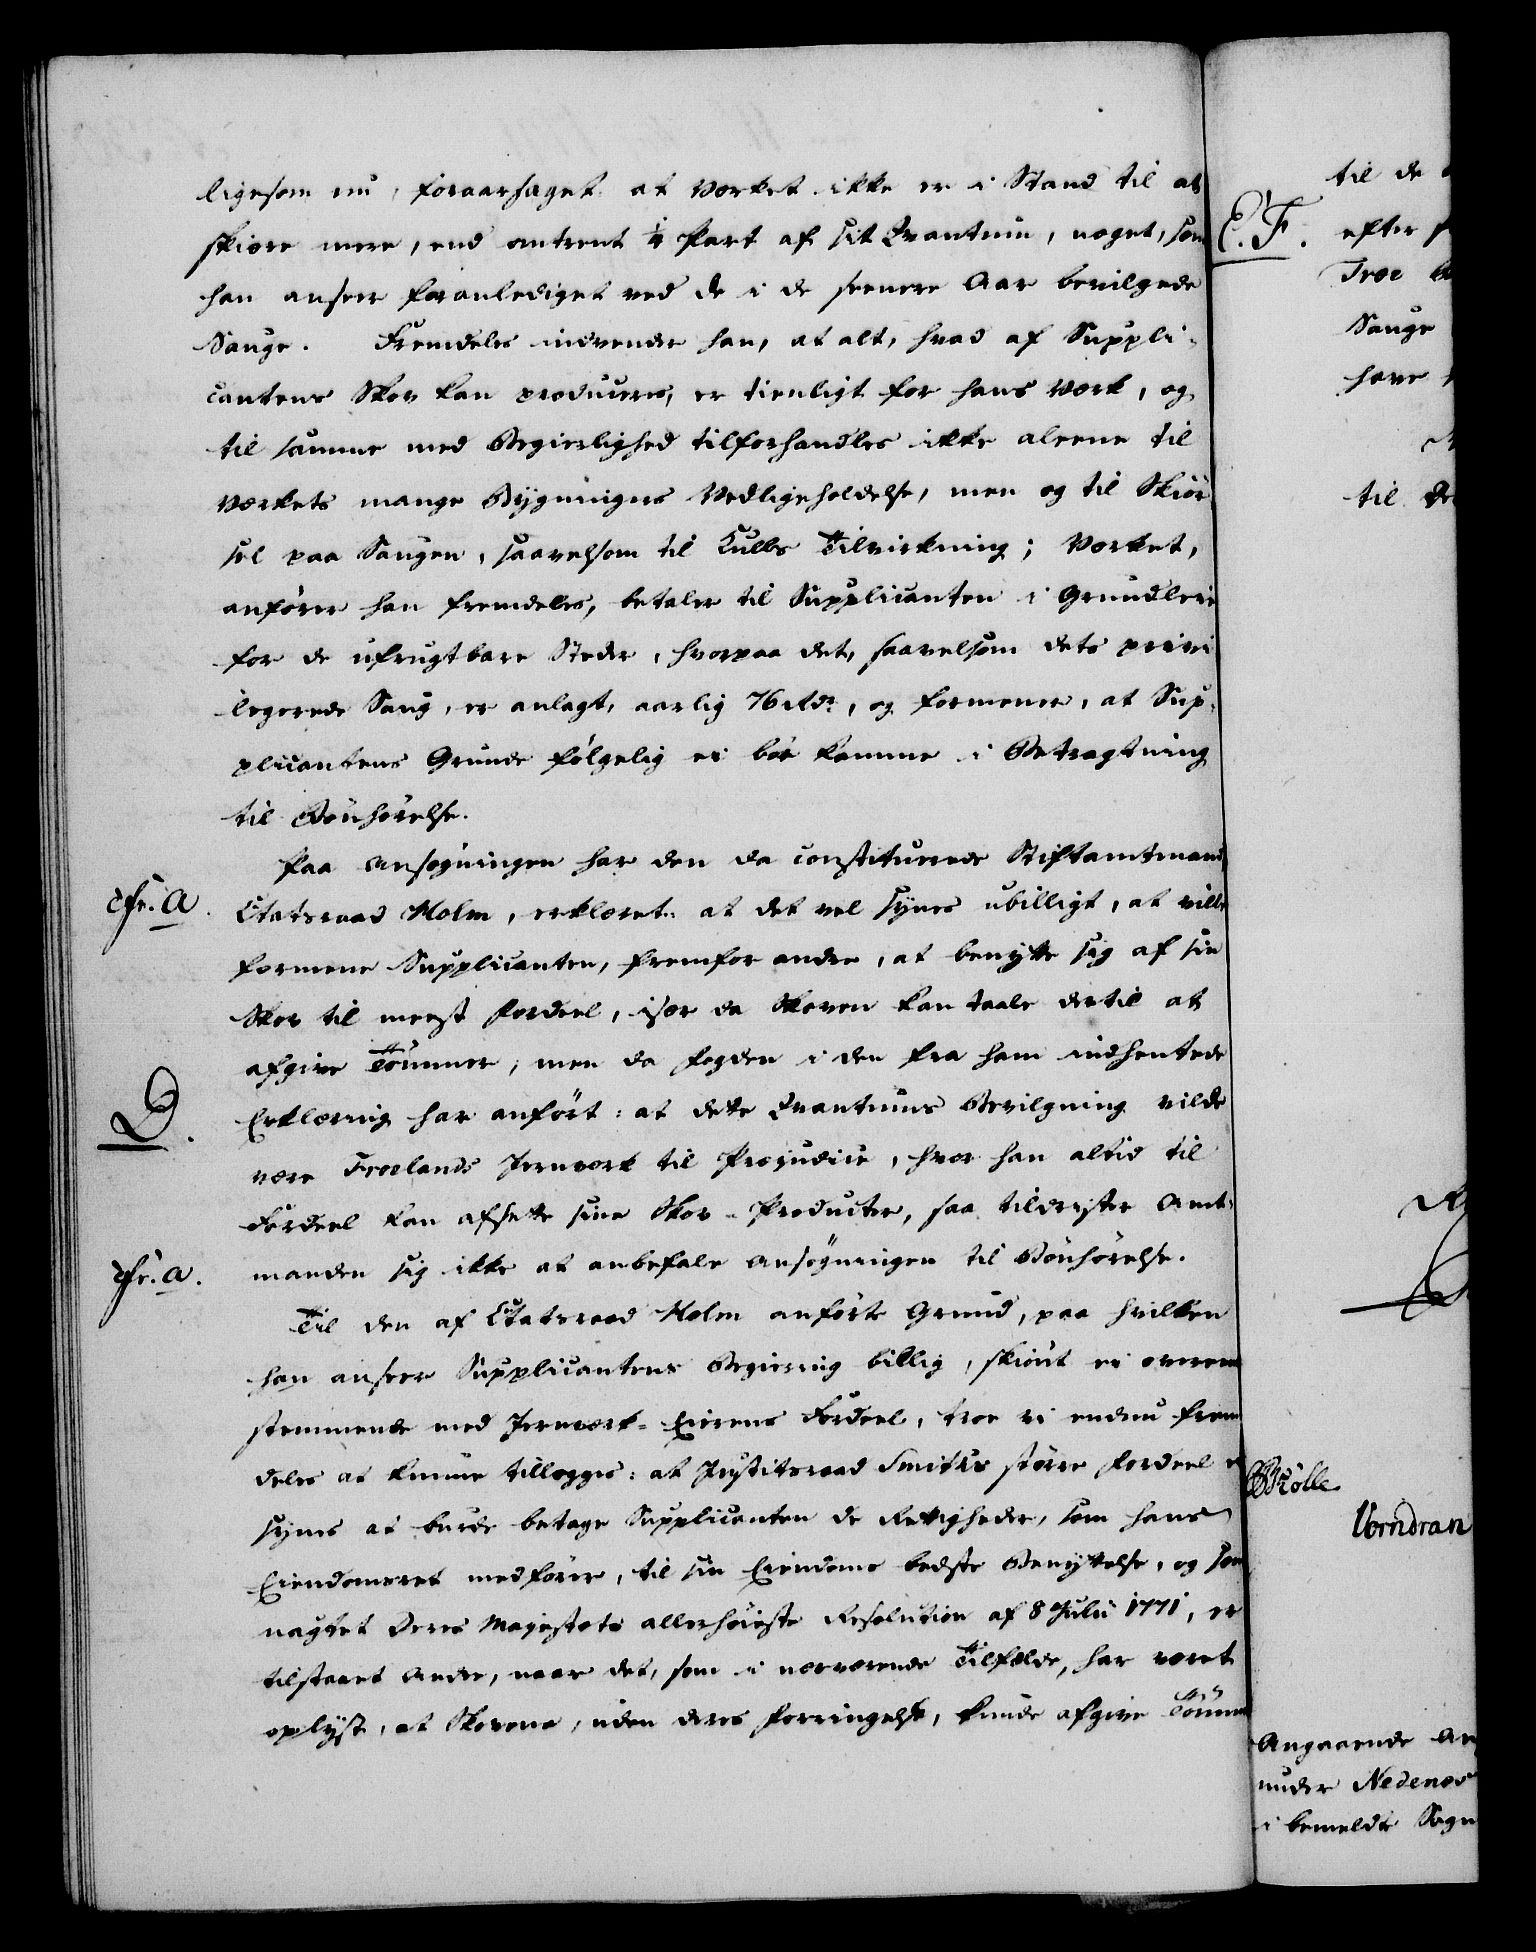 ligesom nu, foraarsaget at Værket ikke er i Stand til at
skiære mere, end omtrent 1/4 Part af sit Qvantum, noget, som
han anseer foranlediget ved de i de seenere Aar bevilgede
Sauge. Fremdeles indvender han, at alt, hvad af Suppli-
cantens Skov kan produceres, er tienligt for hans Værk, og
til samme med Begierlighed tilforhandles ikke aleene til
Værkets mange Bygningers Vedligeholdelse, men og til Skiør-
sel paa Saugen, saavelsom til Kulls Tilvirkning; Værket,
anfører han fremdeles, betaler til Supplicanten i Grundleie
for de ufrugtbare Steder, hvorpaa det, saavelsom dets privi-
legerede Saug, er anlagt, aarlig 76 rdr, og formener, at Sup-
plicantens Grunde følgelig ei bør komme i Betragtning
til Bønhørelse.
Paa Ansøgningen har den da constituerede Stiftamtmand,
cfr. A.
Etatsraad Holm, erklæret: at det vel synes ubilligt, at ville
formene Supplicanten, fremfor andre, at benytte sig af sin
Skov til meest Fordeel, især da Skoven kan taale dertil at
afgive Tømmer; men da Fogden i den fra ham indhentede
D.
Erklæring har anført: at dette Qvantums Bevilgning vilde
være Froelands Jernværk til Præjudice, hvor han altid til
Fordeel kan afsætte sine Skov-Producter, saa tildrister Amt-
cfr. A.
manden sig ikke at anbefale Ansøgningen til Bønhørelse.
Til den af Etatsraad Holm anførte Grund, paa hvilken
han anseer Supplicantens Begiering billig, skiønt ei overeens
stemmende med Jernværk-Eierens Fordeel, troe vi endnu frem
deles at kunne tillægges: at Justitsraad Smiths større Fordeel ei
synes at burde betage Supplicanten de Rettigheder, som hans
Eiendomsret medfører, til sin Eiendoms bedste Benyttelse, og som
uagtet Deres Majestæts allerhøieste Resolution af 8 Julii 1771, er
tilstaaet Andre, naar det, som i nærværende Tilfælde, har været
oplyst, at Skovene, uden deres Forringelse, kunde afgive Tømmer
E. F.
til de
efter
Troe
Sauge
have
til
Mölle
Wendran
Angaaende
under Nedenes
i bemeldte Sogn